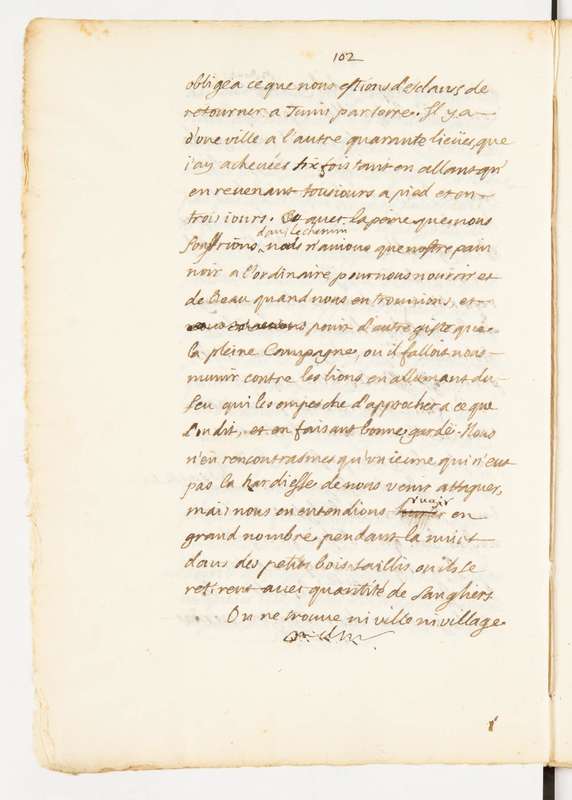 102
obligea ce que nous estions d'esclaves de
retourner a Tunis par terre. Il y a
d'une ville a l'autre quarante lieües, que
i'ay acheuées six fois tant en allant qu'
en reuenant tousiours a pied et en
trois iours. Et auec la peine que nous
dans le chemin
souffrions, nous n'auions que nostre pain
noir a l'ordinaire pour nous nourrir et
de l'eau quand nous en trouuions, et
point d'autre giste que
la pleine Campagne, ou il falloit nous
munir contre les lions en allumant du
feu qui les empesche d'approcher a ce que
l'on dit, et en faisant bonne garde. Nous
n'en rencontrasmes qu'un ieune qui n'eut
pas la hardiesse de nous venir attaquer,
rugir
mais nous en entendions en
grand nombre pendant la nuict
dans des petits bois taillis, ou ils se
retirent auec quantité de sangliers.
On ne trouue ni ville ni village